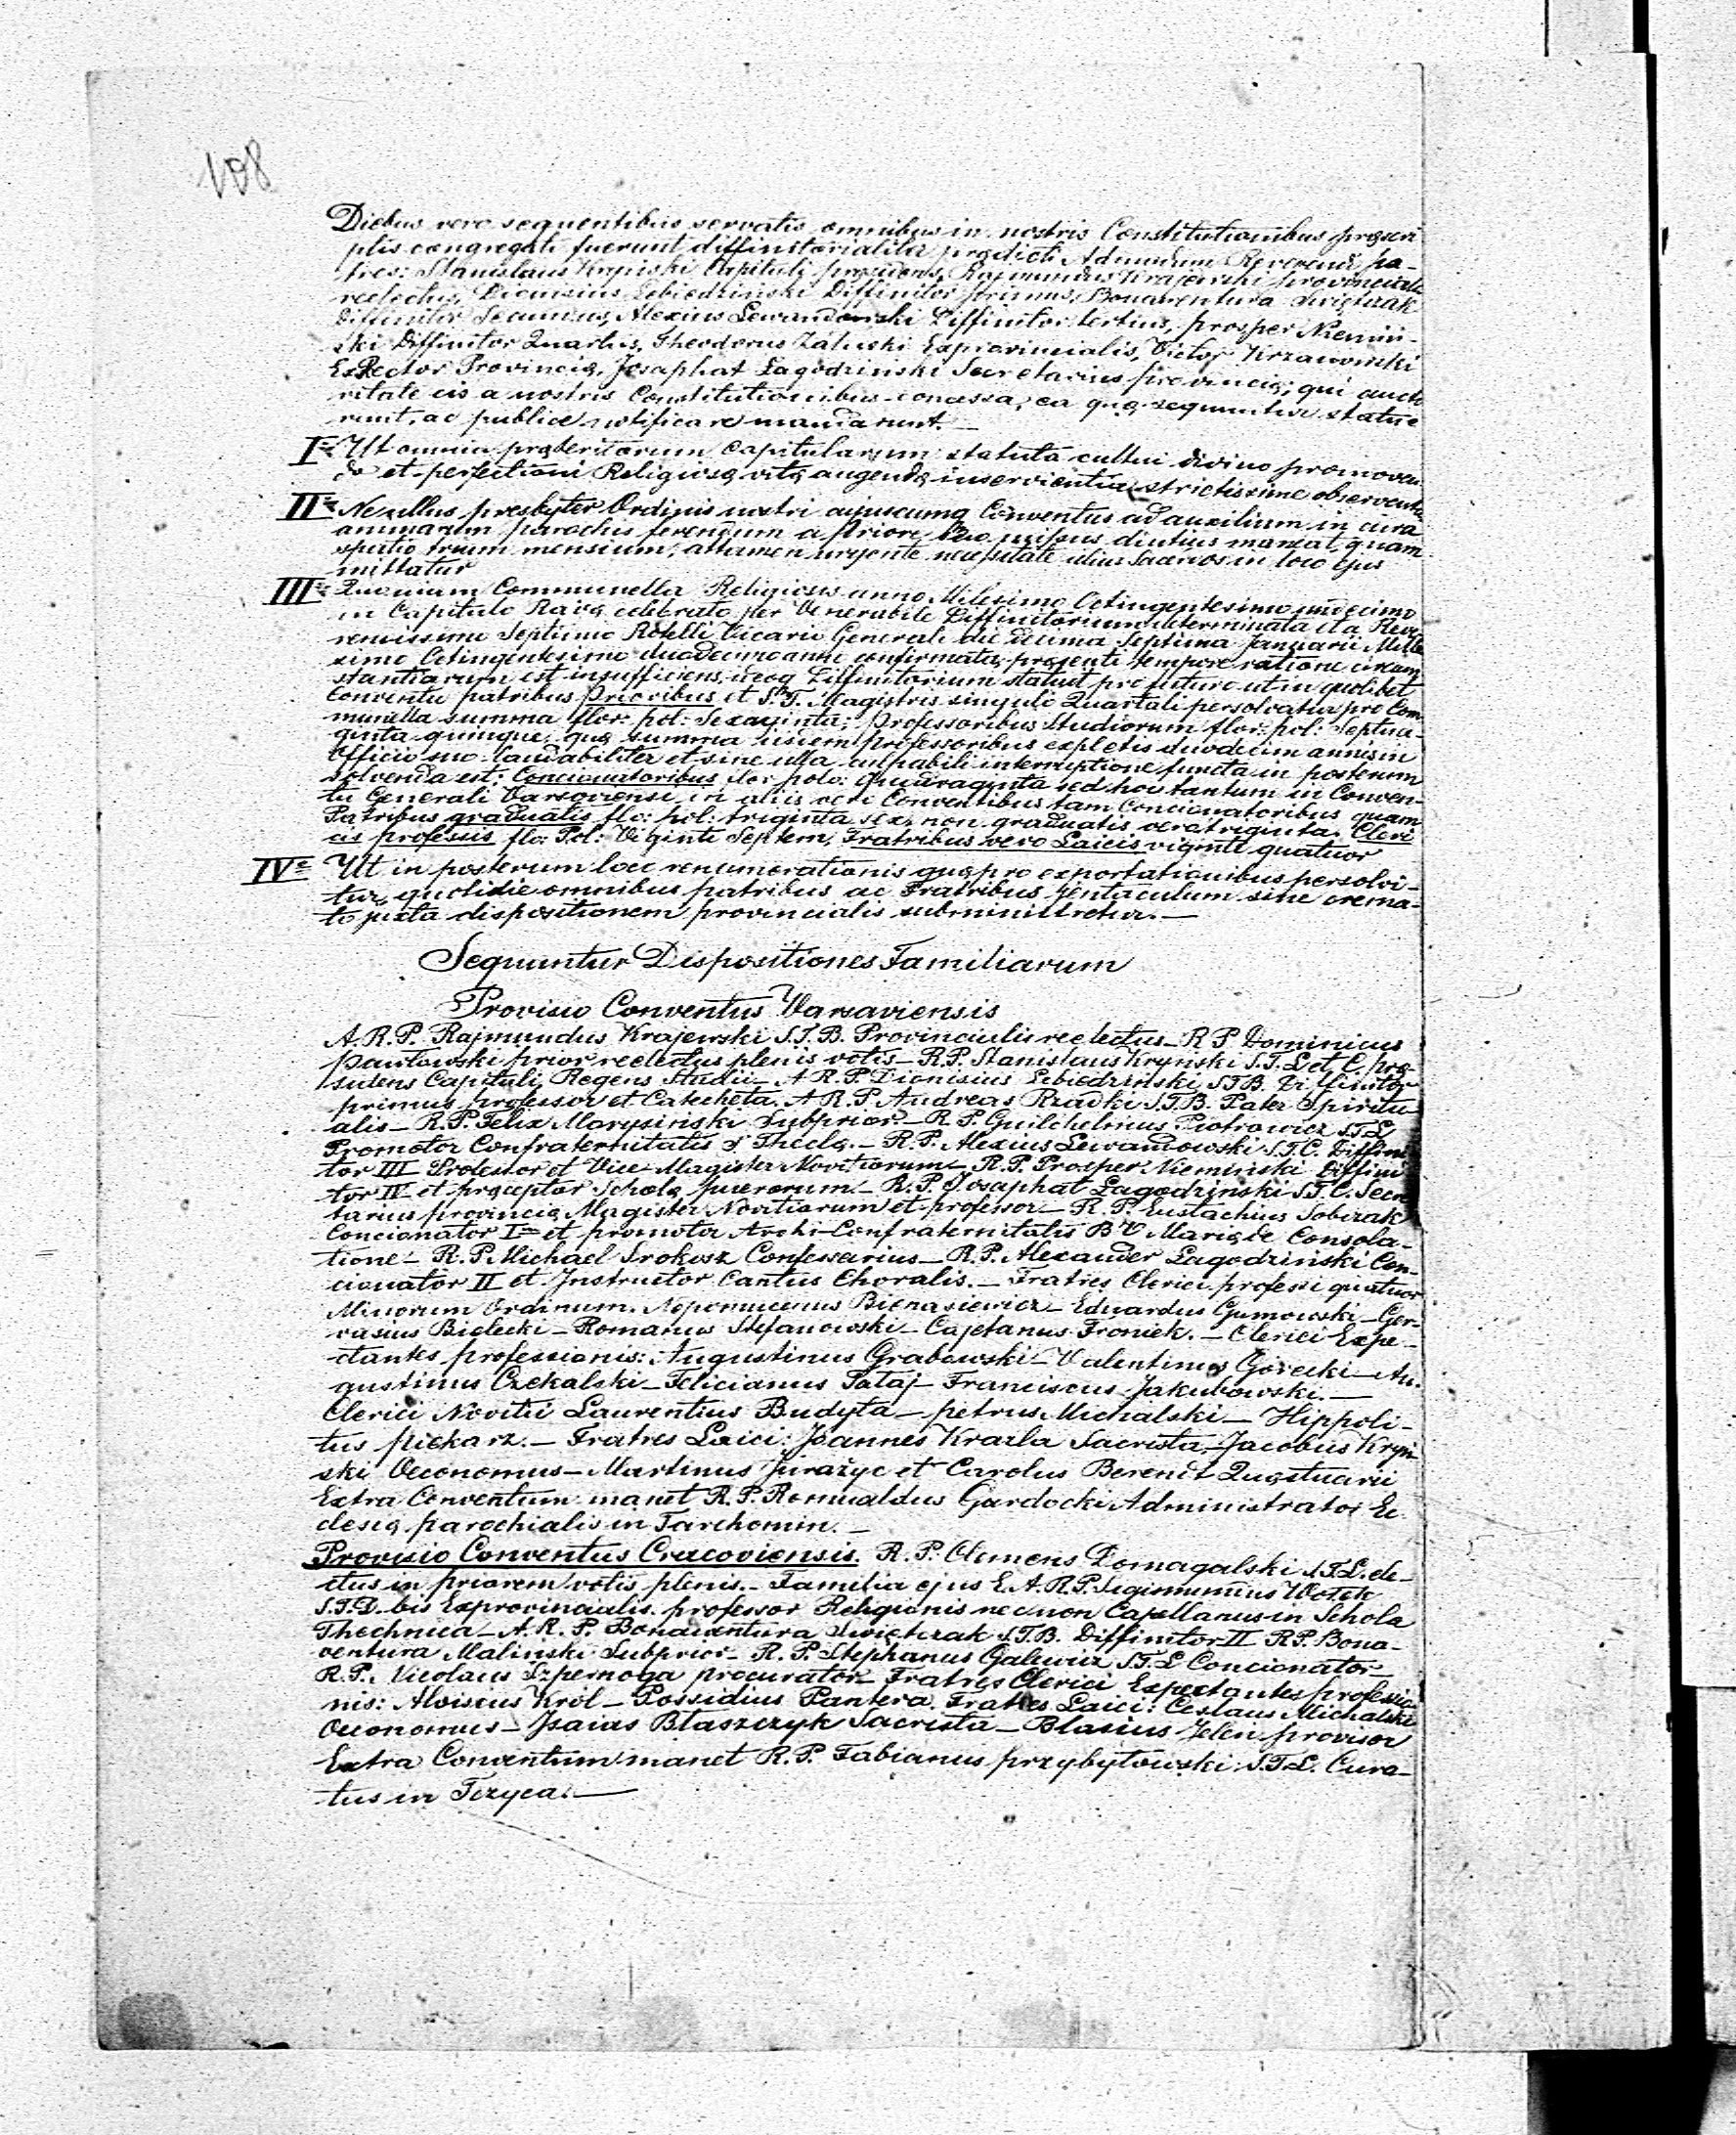 108
Diebus vero sequentibus servatis omnibus in nostris Constitutionibus præscri
ptis congregati fuerunt diffinitorialiter prædicti Admodum Reverendi pa-
tres: Stanislaus Kryński Capituli præsidens, Rajmundus Krajewski provincialis
reelectus, Dionisius Lebiedziński Diffinitor primus, Bonaventura Swiętczak
Diffinitor Secundus, Alexius Lewandowski Diffinitor tertius, prosper Niemiń-
ski Diffinitor Quartus, Theodorus Załuski Exprovincialis, Victor Krzanowski
ExRector Provinciæ, Josaphat Łagodziński Secretarius provinciæ; qui aucto
ritate eis a nostris Constitutionibus concessa, ea quæ sequuntur statue
runt, ac publice notificare mandarunt.
I Ut omnia præteritorum Capitularum statuta cultui divino promoven
do et perfectioni Religiosæ vitæ augendæ inservientia strictissime observentur
II Ne ullus presbyter Ordinis nostri cujuscumq Conventus ad auxilium in cura
animarum parochis ferendum a priore suo missus diutius maneat, quam
spatio trium mensium, attamen urgente necessitate alius Sacerdos in loco ejus
mittatur
III Quoniam Communella Religiosis anno Milesimo Octingentesimo undecimo
in Capitulo Ravæ celebrato per Venerabile Diffinitorium determinata et a Reve
rendissimo Septimio Rotelli Vicario Generali die decima Septima Januarii Mille
simo Octingentesimo duodecimo anni confirmata, præsenti tempore ratione circum
stantiarum est insufficiens, ideoq Diffinitorium statuit pro futuro ut in quolibet
Conventu patribus Prioribus et S. T. Magistris singulo Quartali persolvatur pro Com
munella summa flor: pol: Sexaginta; Professoribus Studiorum flor: pol: Septua-
ginta quinque, quæ summa iisdem professoribus expletis duodecim annis in
Officio suo laudabiliter et sine ulla culpabili interruptione functa in posterum
solvenda est; Concionatoribus flor. polo: Quadraginta sed hoc tantum in Conven-
tu Generali Varsaviensi, in aliis vero Conventibus tam Concionatoribus quam
Patribus graduatis flo: pol: triginta sex, non graduatis vero triginta. Cleri
cis professis flo: Pol: Viginti Septem, Fratribus vero Laicis viginti quatuor
IV Ut in posterum loco renumerationis quæ pro exportationibus persolvi-
tur, quotidie omnibus patribus ac Fratribus jentaculum sine crema-
to juxta dispositionem provincialis subministretur.—
Sequuntur Dispositiones Familiarum
Provisio Conventus Varsaviensis
A. R. P. Rajmundus Krajewski S.T.B. Provincialis reelectus – R P Dominicus
Pawłowski prior reelectus plenis votis – R.P. Stanislaus Kryński S.T.L et C. præ-
sidens Capituli, Regens Studii – A R.P. Dionisius Lebiedziński S.T.B. Diffinitor
primus professor et Catecheta. A R.P. Andreas Rzadki S.T.B. Pater Spiritu-
alis – R.P. Felix Marysiński Subprior – R P. Guilchelmus Piotrowicz S.T.L
Promotor Confraternitatis S Theclæ. – R.P. Alexius Lewandowski S.T.C. Diffini
tor III Professor et Vice Magister Novitiorum – R.P. Prosper Niemiński Diffini
tor IV et præceptor Scholæ puerorum. – R. P. Josaphat Łagodziński S.T.C. Secre
tarius provinciæ Magister Novitiorum et professor – R.P. Eustachius Sobczak
Concionator I et promotor Archi-Confraternitatis B V Mariæ de Consola-
tione – R. P. Michael Srokosz Confessarius – R.P. Alexander Łagodziński Con-
cionator II et Instructor Cantus Choralis. – Fratres Clerici professi quatuor
Minorum Ordinum. Nepomucenus Bienasiewicz – Eduardus Gumowski – Ger-
vasius Bielecki – Romanus Stefanowski – Cajetanus Froniek. – Clerici Expe-
ctantes professionis: Augustinus Grabowski – Valentinus Górecki – Au-
gustinus Czekalski – Felicianus Pataj – Franciscus Jakubowski. —
Clerici Novitii Laurentius Budyta – petrus Michalski – Hippoli-
tus piekarz. – Fratres Laici: Joannes Krazla Sacrista, – Jacobus Kryń
ski Oeconomus – Martinus Jurażyc et Carolus Berendt Quæstuarii
Extra Conventum manet R. P. Romualdus Gardocki Administrator Ec
clesiæ parochialis in Tarchomin. –
Provisio Conventus Cracoviensis. R. P. Clemens Domagalski S.T.L. ele-
ctus in priorem votis plenis. – Familia ejus E. A. R. P. Sigismundus Wołek
S.T.D. bis Exprovincialis. professor Religionis nec non Capellanus in Schola
Thechnica – A. R. P. Bonaventura Swiętczak S.T.B. Diffinitor II R.P. Bona-
ventura Maliński Subprior – R. P. Stephanus Galewicz S.T.L Concionator
R.P. Nicolaus Szpernoga procurator – Fratres Clerici Expectantes professio
nis: Aloisius Król – Possidius Pantera. Fratres Laici: Ceslaus Michalski
Oeconomus – Isaias Błaszczyk Sacrista – Blasius Jeleń provisor
Extra Conventum manet R. P. Fabianus przybyłowski S.T.L. Cura-
tus in Tczyca. —